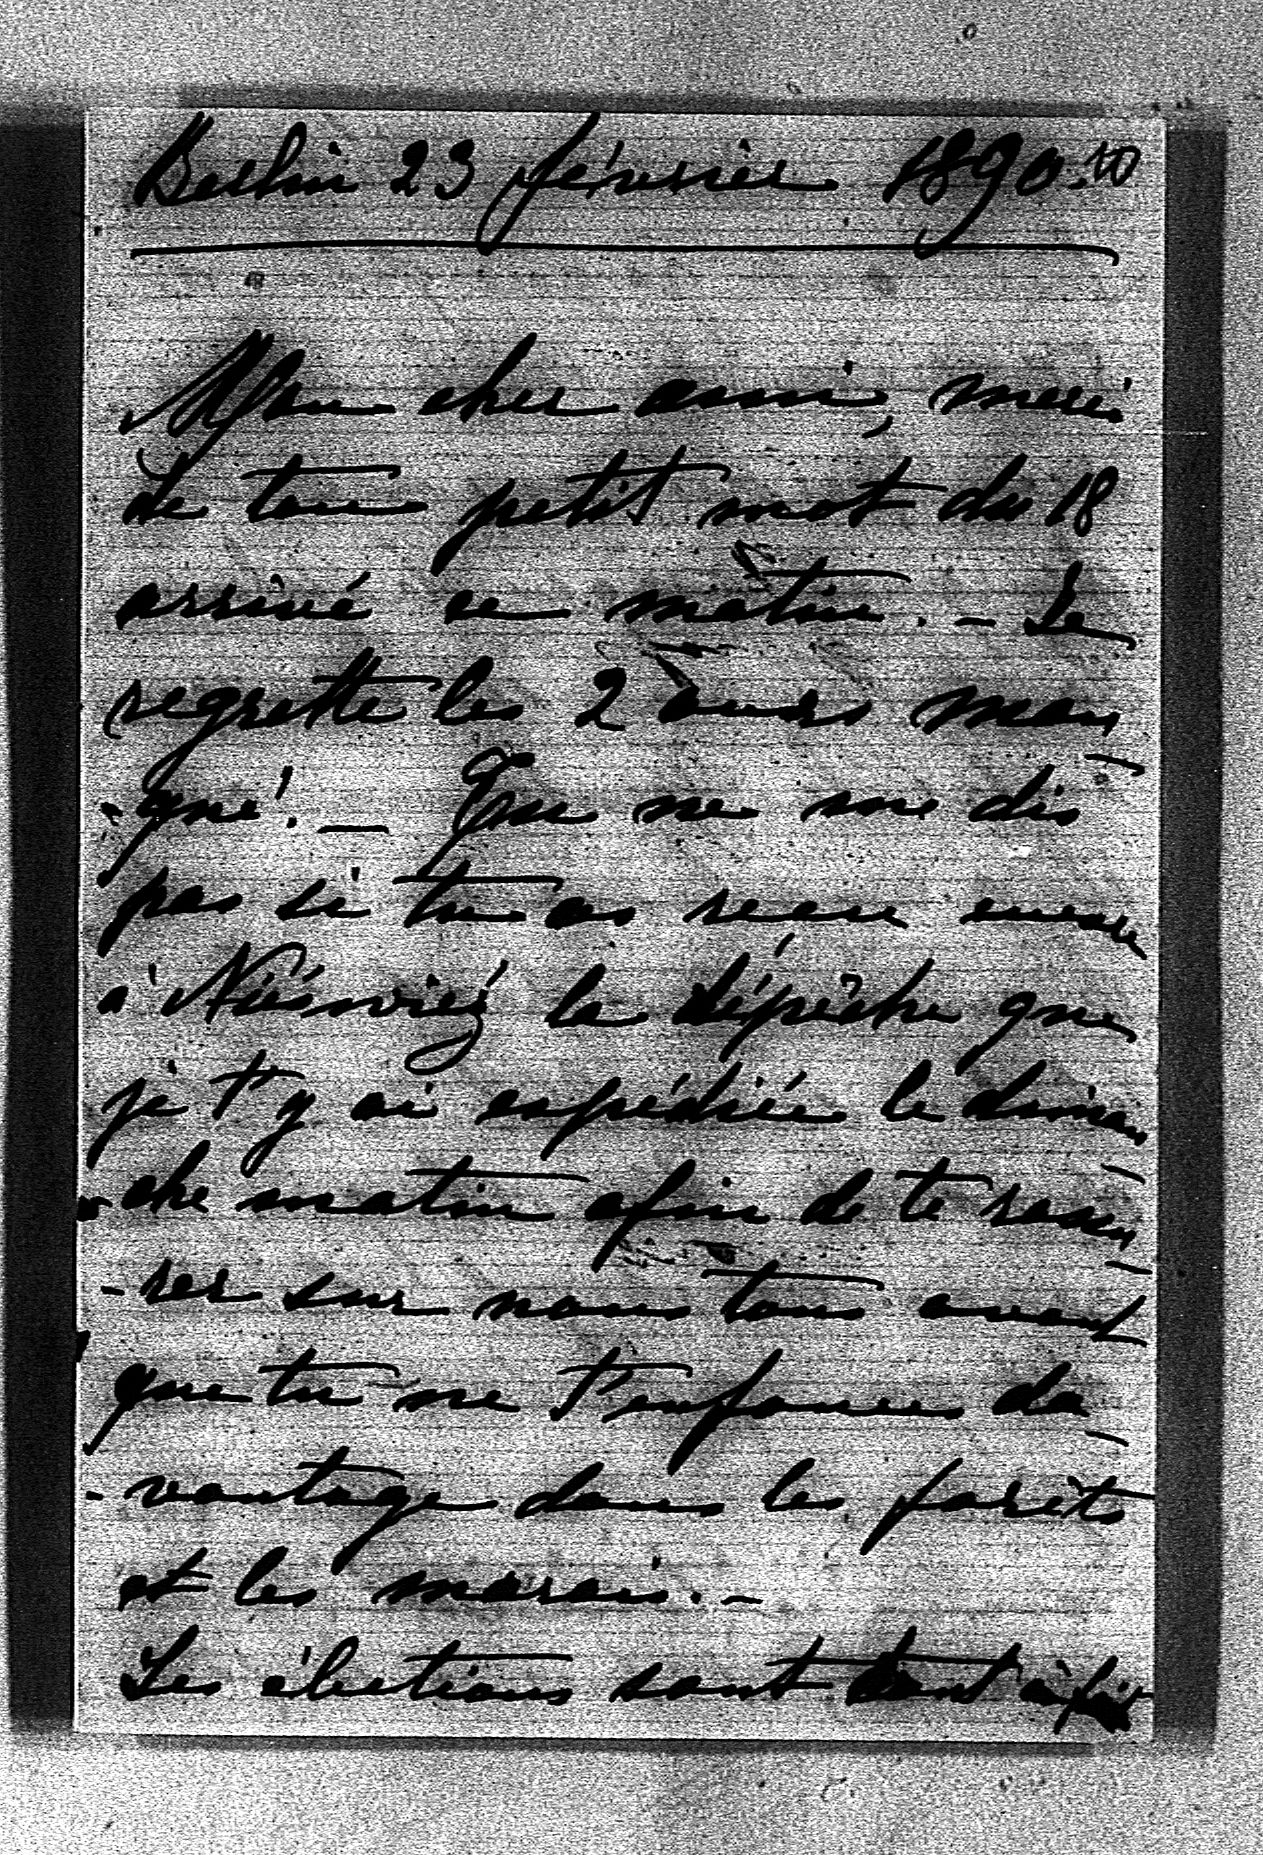 Berlin 23 février 1890.
Mon cher ami, merci
de ton petit mot du 18
arrivé ce matin. – Je
regrette les 2 ours man
-qué! – Tu ne me dis
pas si tu as reçu encore
à Nieświéż la dépêche que
je t'y ai expédiée le diman
che matin afin de te rassu
-rer sur nous tous avant
que tu ne t'enfonces da
-vantage dans les forêts
et les marais. –
Les élections sont tout à fait